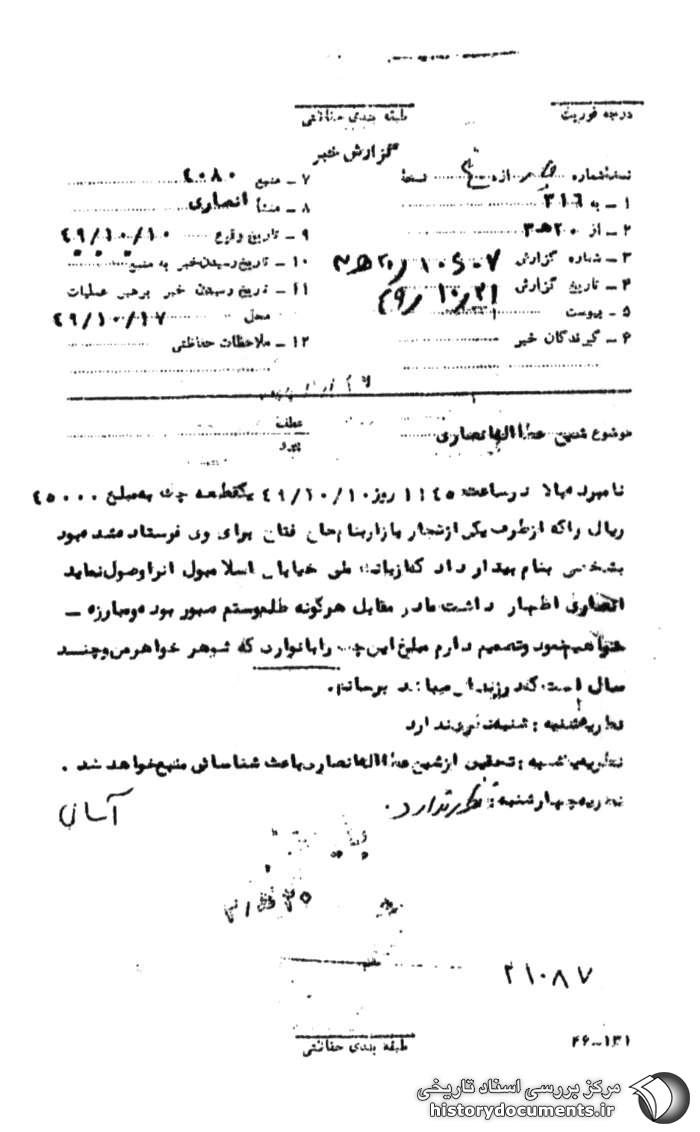 درجه فوریت
طبقه بندی حفاظتی
گزارش خبر
نسخه شماره از نسخه
۱ ـ به ۳۱٦
۲ ـ از ۲۰ ه‍ ۳
۳ ـ شماره گزارش
۴ ـ تاریخ گزارش ۲۱ / ۱۰ / ٤۹
۵ ـ پیوست
۶ ـ گیرندگان خبر
۷ ـ منبع ٤۰۸۰
۸ ـ منشأ انصاری
۹ ـ تاریخ وقوع ٤۹/۱۰/۱۰
۱۰ ـ تاریخ رسیدن خبر به منبع
۱۱ ـ تاریخ رسیدن خبر برهبر عملیات
محل ٤۹/۱۰/۱۷
۱۲ ـ ملاحظات حفاظتی
موضوع شیخ عطااله انصاری
عطف
پیرو
نامبرده بالا در ساعت ۱۱٤۵ روز ٤۹/۱۰/۱۰ یکقطعه چک به مبلغ ٤۵۰۰۰
ریال راکه ازطرف یکی ازتجار بازار بنام حاج فتاح برای وی فرستاده شده بود
بشخصی بنام بیدار داد که از بانک ملی خیابان اسلامبول انرا وصول نماید
انصاری اظهار داشت ما در مقابل هرگونه ظلم وستم صبور بوده ومبارزه ـ
خواهیم نمود وتصمیم دارم مبلغ این چک را بانوارد که شوهر خواهر من وچند
سال است که در زندان میباشد برسانم.
نظریه شنبه : شنبه نظری ندارد
نظریه یکشنبه : تحقیق از شیخ عطااله انصاری باعث شناسائی منبع خواهد شد .
نظریه چهارشنبه : نظری ندارد . آسان
۲۱۰۸۷
طبقه بندی حفاظتی
۴۶ـ۱۳۱
مرکز بررسی اسناد تاریخی
historydocuments.ir